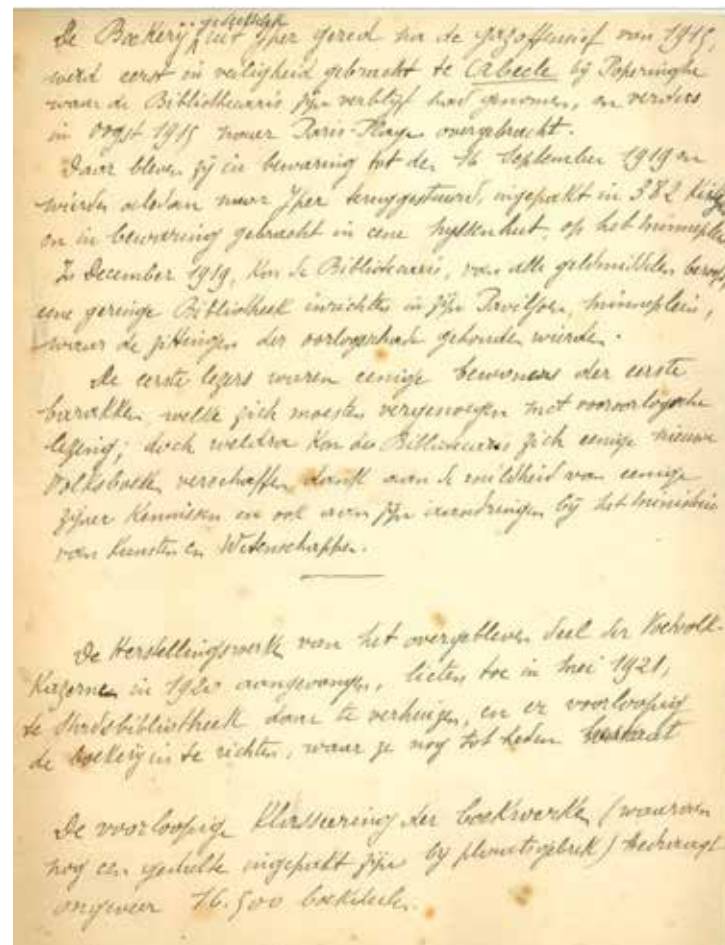 gedeeltelijk
De Boekerij uit Yper gered na de gazoffensief van 1915,
werd eerst in veiligheid gebracht te Abeele bij Poperinghe
waar de Bibliothecaris zijn verblijf had genomen, en verders
in Oogst 1915 naar Paris-Plage overgebracht.
Daar bleven zij in bewaring tot den 16 September 1919 en
wierden alsdan naar Yper teruggestuurd, ingepakt in 382 
en in bewaring gebracht in eene Nyssenhut, op het Minneplein
In December 1919, kon de Bibliothecaris, van alle geldmiddelen beroofd,
eene geringe Bibliotheek inrichten in zijn Paviljoen, Minneplein,
waar de zittingen der oorlogschade gehouden wierden.
De eerste lezers waren eenige bewoners der eerste
barakken, welke zich moesten vergenoegen met vooroorlogsche
lezing; doch weldra kon de Bibliothecaris zich eenige nieuwe
Volksboeken verschaffen, dank aan de mildheid van eenige
zijner kennissen en ook aan zijn aandringen bij het Ministerie
van Kunsten en Wetenschappen.
De Herstellingswerken van het overgebleven deel der Voetvolk-
Kazerne in 1920 aangevangen, lieten toe in Mei 1921,
de Stadsbibliotheek daar te verhuizen, en er voorloopig
de boekerij in te richten, waar ze nog tot heden
De voorloopige klasseering der boekwerken (waarvan
nog een gedeelte ingepakt zijn bij plaatsgebrek) bedraagt
ongeveer 16.500 boekdeelen.